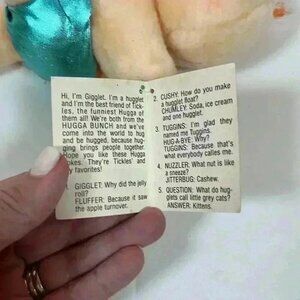 Hi, I'm Gigglet. I'm a hugglet
and I'm the best friend of Tick-
les, the funniest Hugga of
them all! We're both from the
HUGGA BUNCH and we've
come into the world to hug
and be hugged, because hug-
ging brings people together.
Hope you like these Hugga
Jokes. They're Tickles' and
my favorites!
GIGGLET: Why did the jelly
roll?
FLUFFER: Because it saw
the apple turnover.
2. CUSHY: How do you make
a hugglet float?
CHUMLEY: Soda, ice cream
and one hugglet.
3. TUGGINS: I'm glad they
named me Tuggins.
HUG-A-BYE: Why?
TUGGINS: Because that's
what everybody calls me.
4. NUZZLER: What nut is like
a sneeze?
JITTERBUG: Cashew.
5. QUESTION: What do hug-
glets call little grey cats?
ANSWER: Kittens.